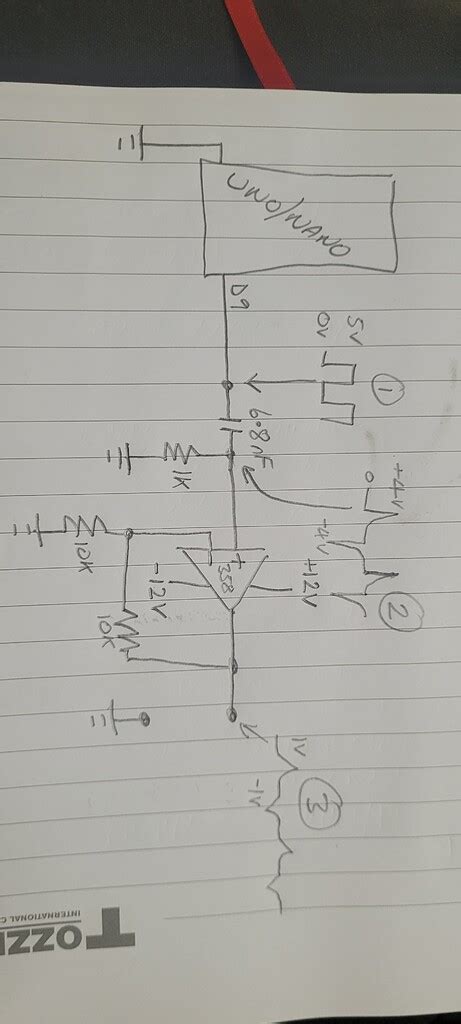 UNO/NANO
D9
5V
0V
1
6.8nF
1K
+4V
0
-4V
2
+12V
+
358
-12V
10K
10K
1V
-1V
3
TOZZI
INTERNATIONAL C